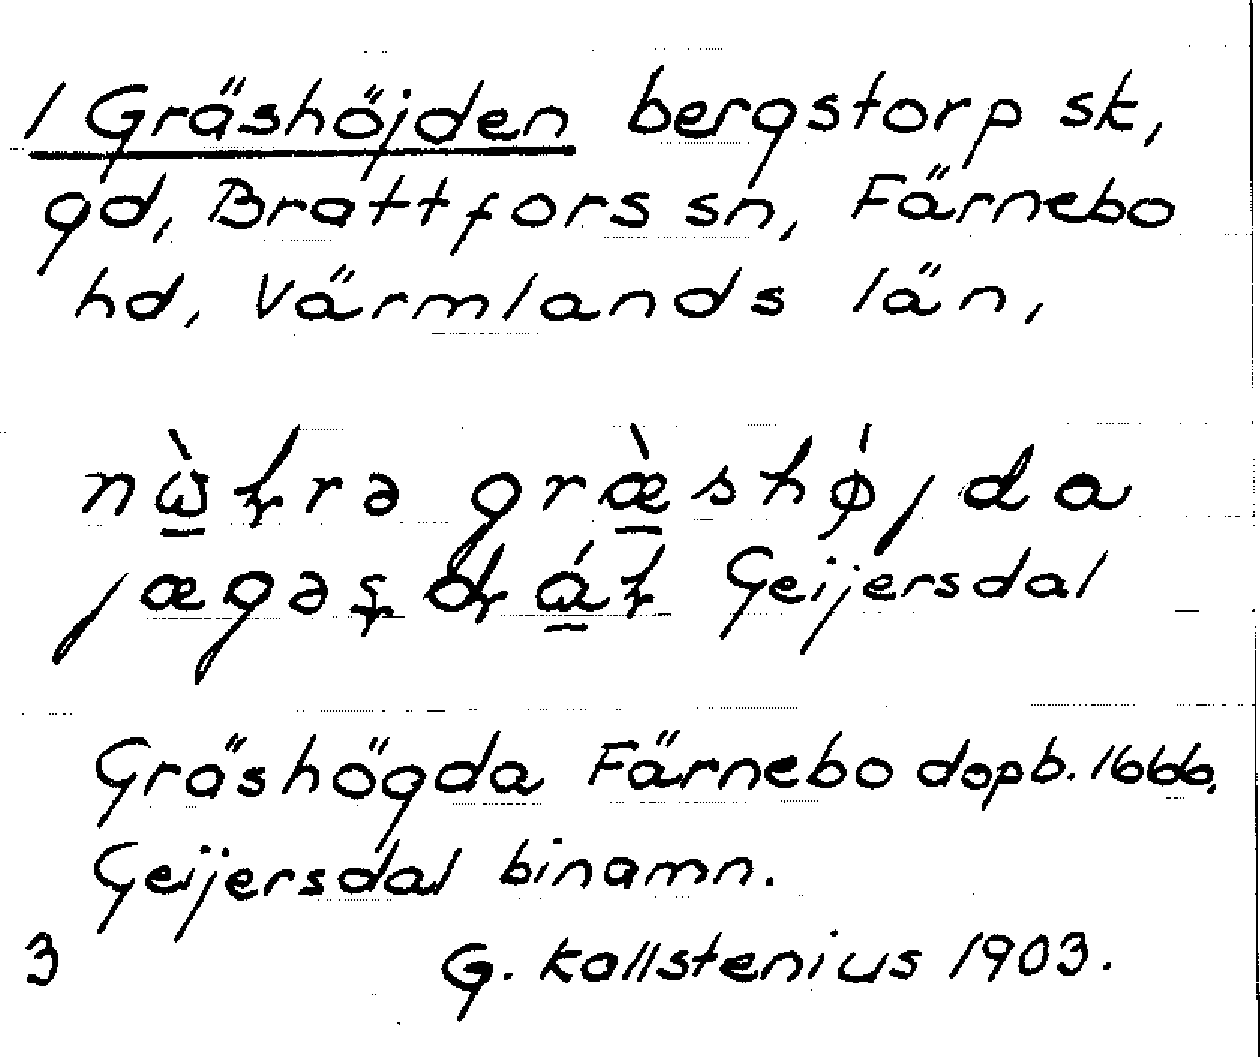 1 Gräshöjden bergstorp sk,
gd, Brattfors sn, Färnebo
hd, Värmlands län,
Geijersdal
Gräshögda Färnebo dopb. 1666.
Geijersdal binamn.
3 G. Kallstenius 1903.